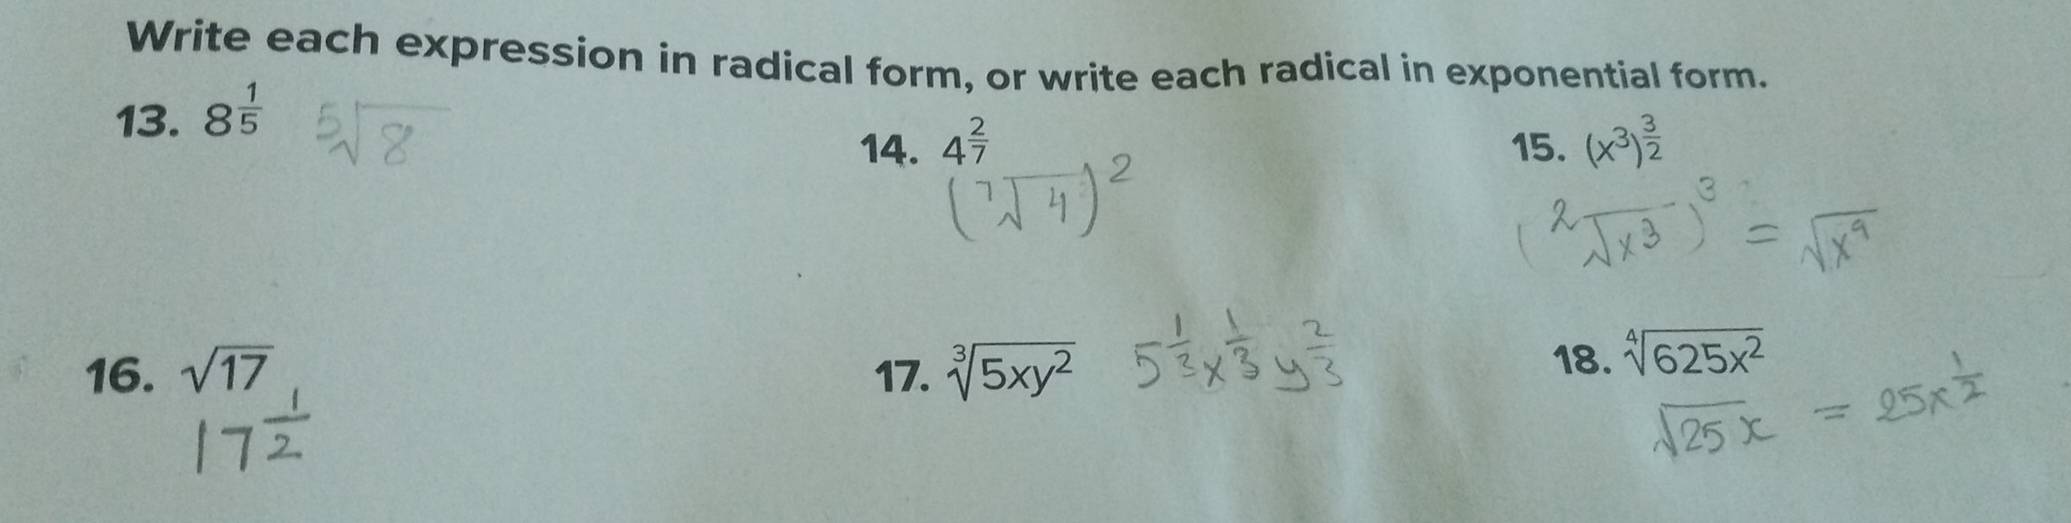 Write each expression in radical form, or write each radical in exponential form.
13. 8^(1/5) ⁵√8
14. 4^(2/7)
(⁷√4)²
15. (x³)^(3/2)
(²√x³)³ = √x⁹
16. √17
17^(1/2)
17. ³√5xy² 5^(1/3) x^(1/3) y^(2/3)
18. ⁴√625x²
√25x = 25x^(1/2)